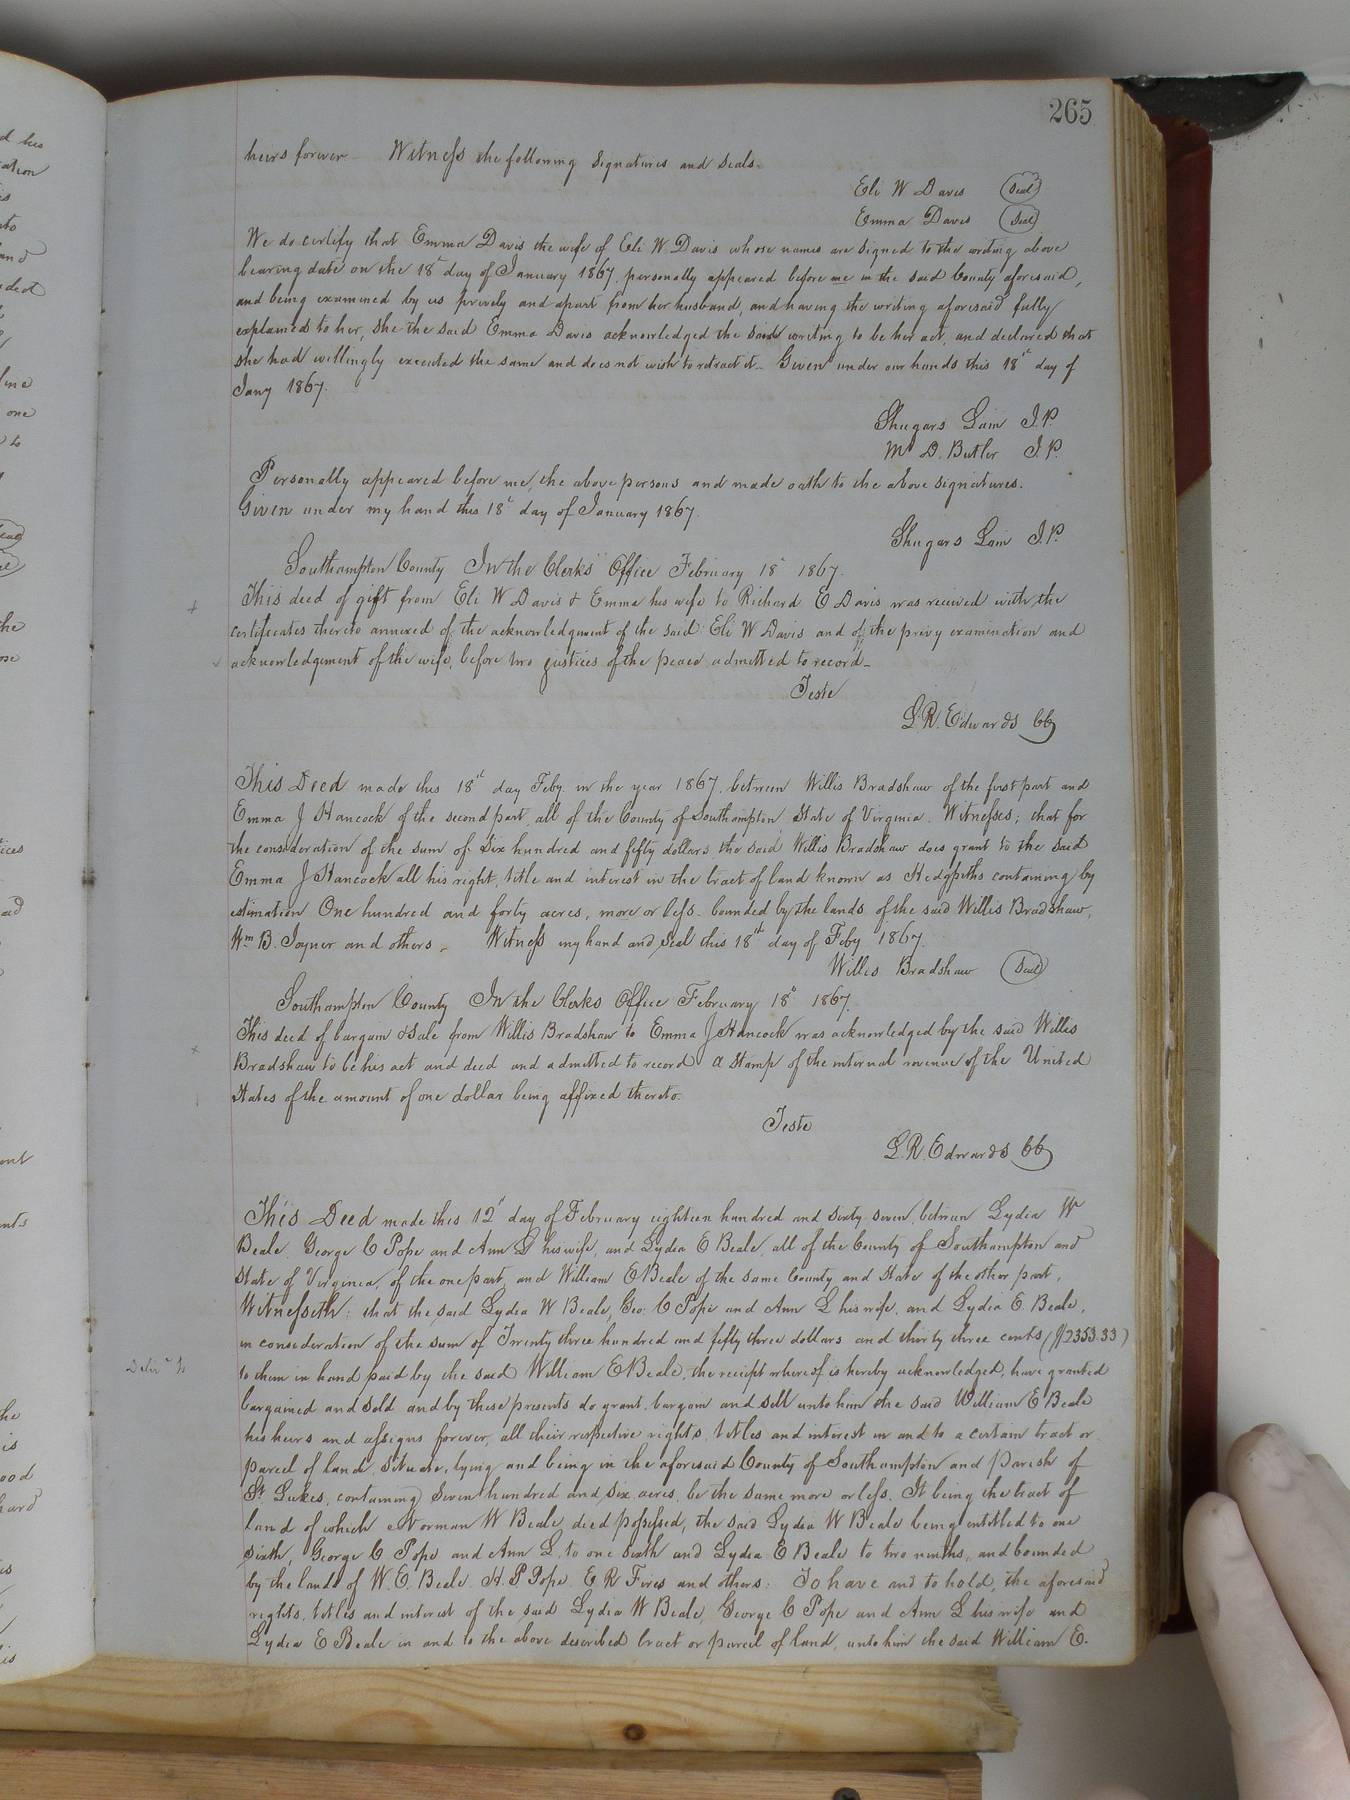 265
heirs forever Witness the following signatures and seals.
Eli W Davis (Seal)
Emma Davis (Seal)
We do certify that Emma Davis the wife of Eli W. Davis whose names are signed to the writing above
bearing date on the 18th day of January 1867, personally appeared before me in the said County aforesaid,
and being examined by us privily and apart from her husband, and having the writing aforesaid fully
explained to her, she the said Emma Davis acknowledged the said writing to be her act, and declared that
she had willingly executed the same and does not wish to retract it. Given under our hands this 18th day of
Jany 1867.
Shugars Lain J.P.
D. Butler J.P.
Personally appeared before me, the above persons and made oath to the above signatures.
Given under my hand this 18th day of January 1867.
Shugars Lain J.P.
Southampton County In the Clerk's Office February 18th 1867.
This deed of gift from Eli W Davis & Emma his wife to Richard E Davis was received with the
certificates thereto annexed of the acknowledgment of the said Eli W Davis and of the privy examination and
acknowledgement of the wife, before two justices of the peace admitted to record
Teste
L.R. Edwards CC
This Deed made this 18th day Feby. in the year 1867, between Willis Bradshaw of the first part and
Emma J Hancock of the second part, all of the County of Southampton State of Virginia. Witnesses; that for
the consideration of the sum of Six hundred and fifty dollars, the said Willis Bradshaw does grant to the said
Emma J Hancock all his right, title and interest in the tract of land known as Hedgpeths containing by
estimation One hundred and forty acres, more or less. bounded by the lands of the said Willis Bradshaw,
Wm B. Joyner and others. Witness my hand and Seal this 18th day of Feby 1867.
Willis Bradshaw (Seal)
Southampton County In the Clerks Office February 18th 1867.
This deed of bargain & Sale from Willis Bradshaw to Emma J Hancock was acknowledged by the said Willis
Bradshaw to be his act and deed and admitted to record a Stamp of the internal revenue of the United
States of the amount of one dollar being affixed thereto.
Teste
L.R. Edwards CC
This Deed made this 12th day of February eighteen hundred and sixty seven, between Lydia W
Beale, George C Pope and Ann L his wife, and Lydia E Beale, all of the County of Southampton and
State of Virginia, of the one part, and William E Beale of the same County and State of the other part,
Witnesseth: that the said Lydia W Beale, Geo. C Pope and Ann L his wife, and Lydia E. Beale,
in consideration of the sum of Twenty three hundred and fifty three dollars and thirty three cents ($2353.33)
to them in hand paid by the said William E Beale, the receipt whereof is hereby acknowledged, have granted
bargained and sold and by these presents do grant, bargain and sell unto him the said William E Beale
his heirs and assigns forever, all their respective rights, titles and interest in and to a certain tract or
parcel of land, situate, lying and being in the aforesaid County of Southampton and parish of
St. Lukes, containing Seven hundred and six acres, be the same more or less. It being the tract of
land of which Norman W Beale, died possessed, the said Lydia W Beale being entitled to one
sixth, George C Pope and Ann L. to one sixth and Lydia E Beale to two ninths, and bounded
by the lands of W. E. Beale H. P Pope E R and others: To have and to hold, the aforesaid
rights, titles and interest of the said Lydia W Beale, George C Pope and Ann L his wife and
Lydia E Beale in and to the above described tract or parcel of land, unto him the said William E.